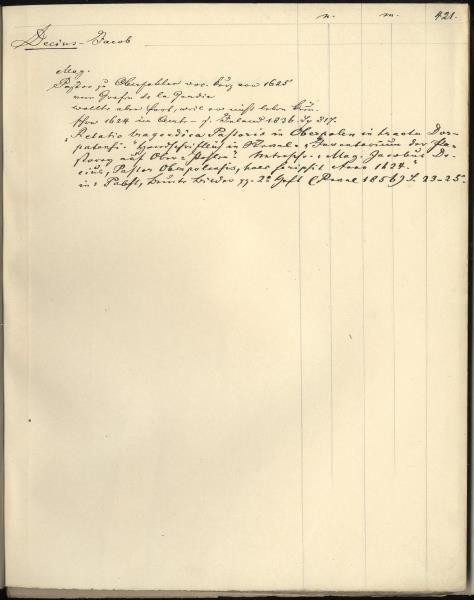 n. m. 421.
Decius - Jacob
Mag.
Pastor zu Oberpahlen voc. 1625
vom Grafen de la Gardie
wollte aber fort, weil er nicht leben
schon 1624 im Amt - s. Inland 1836. Sp. 317.
"Relatio tragoedica Pastoris in Oberpalen in tractu Dor-
patensi." Handschriftlich in Reval. "Inventarium der Pa-
storey auf Ober Pahlen". Unterschr.: "Mag. Jacobus De-
cius, Pastor Oberpolensis, haec scripsit Anno 1624."
in: Pabst, Bunte Bilder 2s Heft (Reval 1856) S. 23-25.